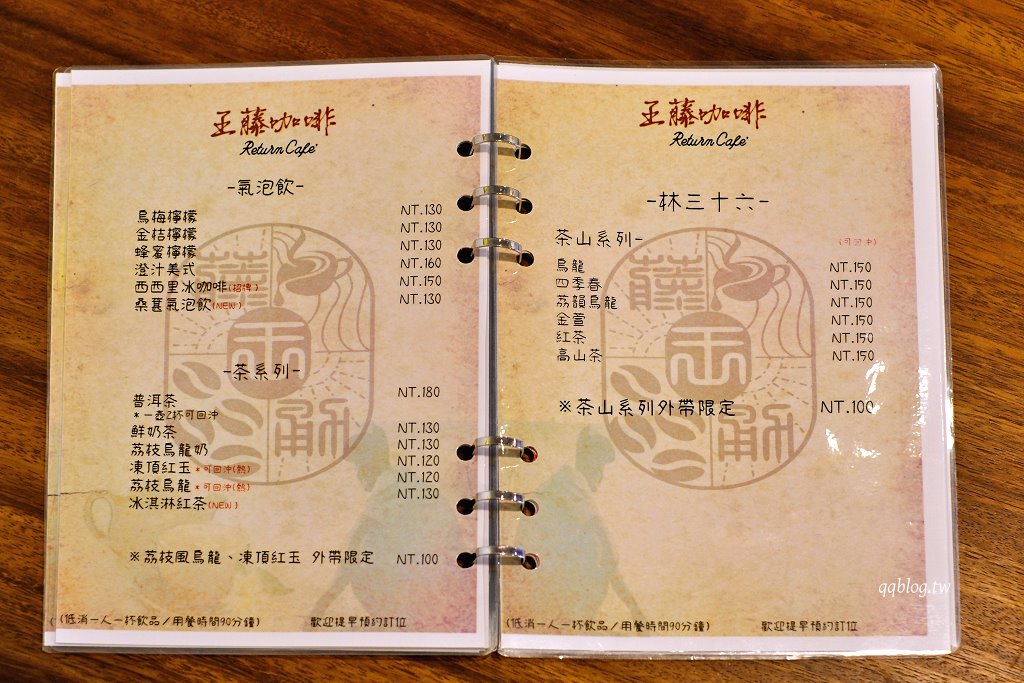 玉藤咖啡
Return Cafe'
-氣泡飲-
烏梅檸檬 NT.130
金桔檸檬 NT.130
蜂蜜檸檬 NT.130
澄汁美式 NT.160
西西里冰咖啡(招牌) NT.150
桑葚氣泡飲(NEW) NT.130
-茶系列-
普洱茶 NT.180
*一壺2杯可回沖
鮮奶茶 NT.130
荔枝烏龍奶 NT.130
凍頂紅玉*可回沖(熱) NT.120
荔枝烏龍*可回沖(熱) NT.120
冰淇淋紅茶(NEW) NT.130
※荔枝風烏龍、凍頂紅玉 外帶限定 NT.100
(低消一人一杯飲品/用餐時間90分鐘) 歡迎提早預約訂位
玉藤咖啡
Return Cafe'
-林三十六-
茶山系列- (可回沖)
烏龍 NT.150
四季春 NT.150
荔韻烏龍 NT.150
金萱 NT.150
紅茶 NT.150
高山茶 NT.150
※茶山系列外帶限定 NT.100
(低消一人一杯飲品/用餐時間90分鐘) 歡迎提早預約訂位
qqblog.tw